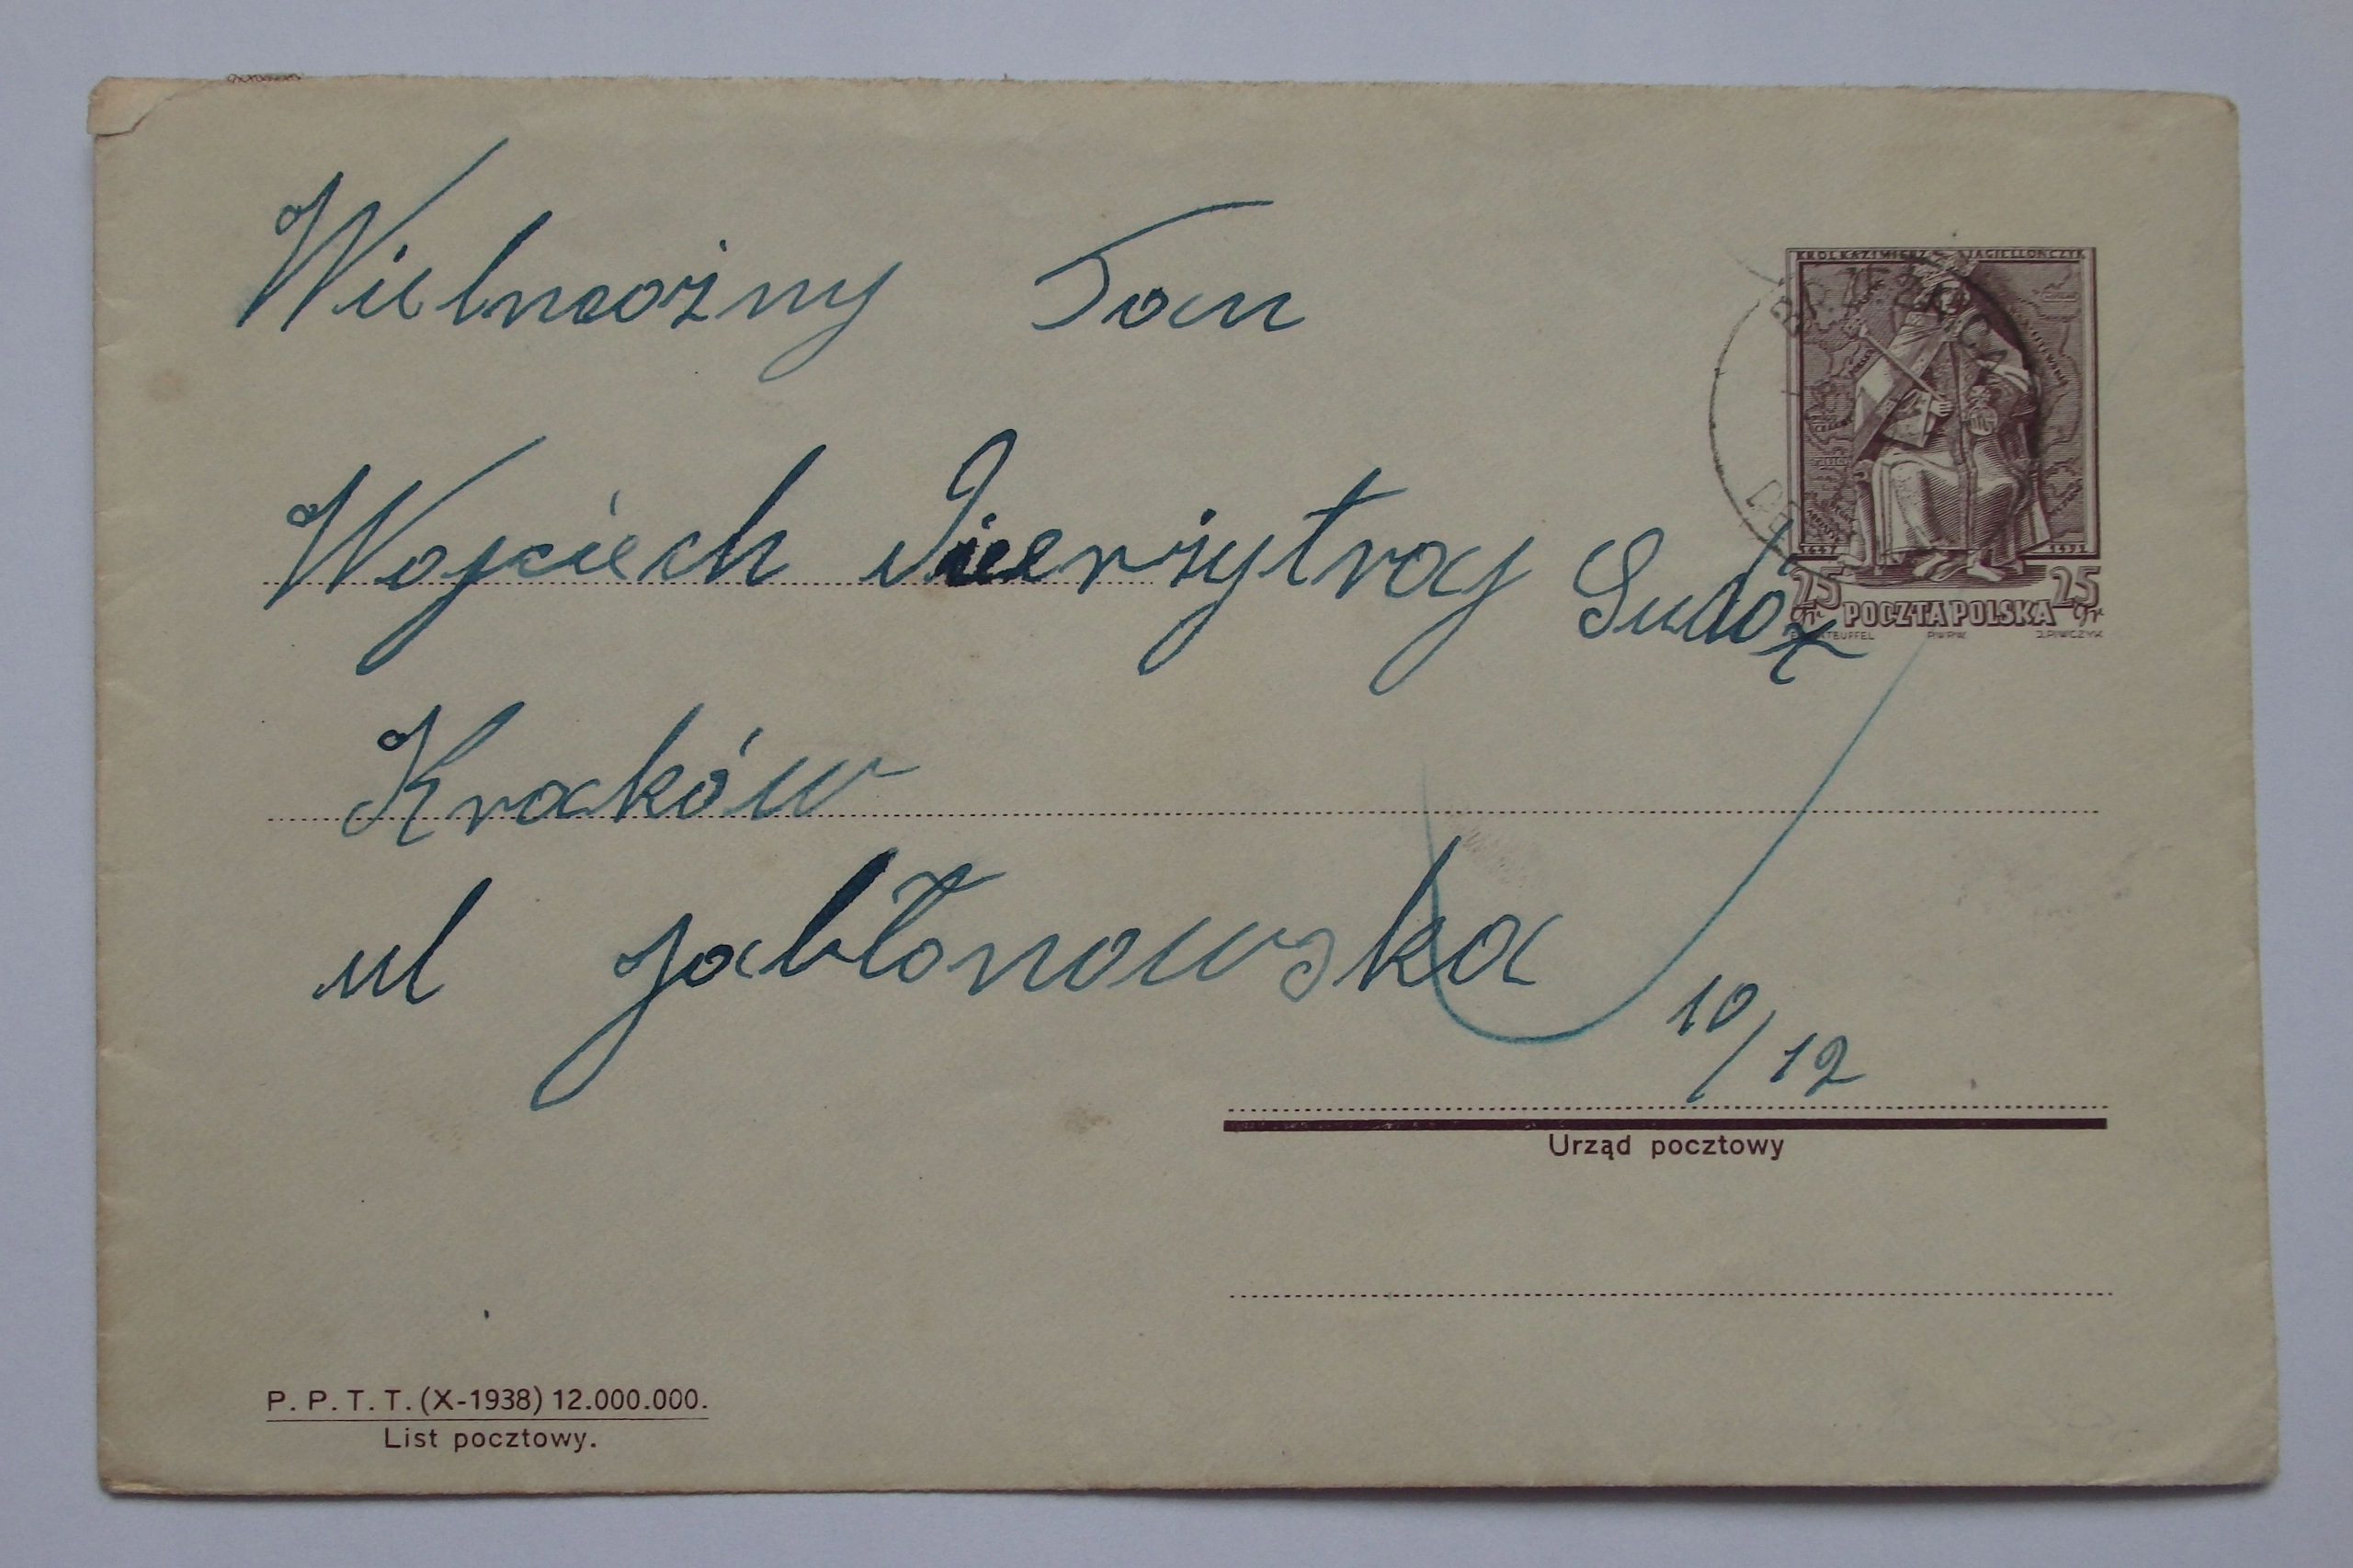 Wielmożny Pan
Wojciech
Kraków
ul Jabłonowska
10/12
KRÓL KAZIMIERZ JAGIELLOŃCZYK
1447 1492
25 gr POCZTA POLSKA 25 gr
P.W.P.W. J.PIWCZYK
Urząd pocztowy
P. P. T. T. (X-1938) 12.000.000.
List pocztowy.